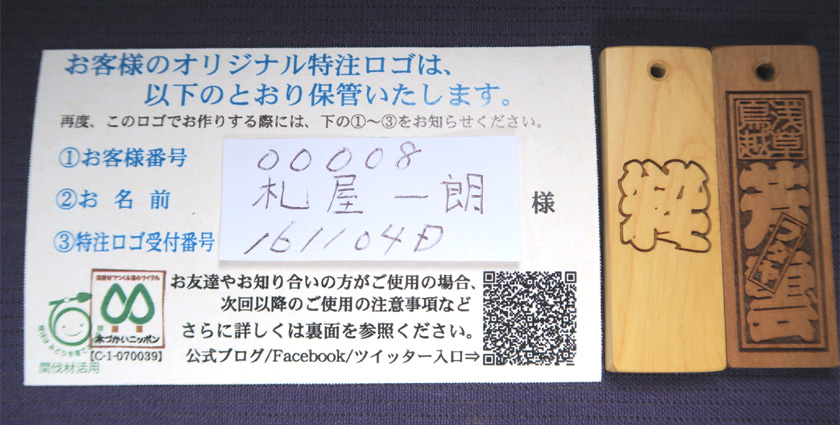 お客様のオリジナル特注ロゴは、
以下のとおり保管いたします。
再度、このロゴでお作りする際には、下の①～③をお知らせください。
①お客様番号 00008
②お名前 札屋一朗 様
③特注ロゴ受付番号 161104D
お友達やお知り合いの方がご使用の場合、
次回以降のご使用の注意事項など
さらに詳しくは裏面を参照ください。
公式ブログ/Facebook/ツイッター入口⇒
木づかいニッポン
【C-1-070039】
間伐材活用
浅草
鳥越